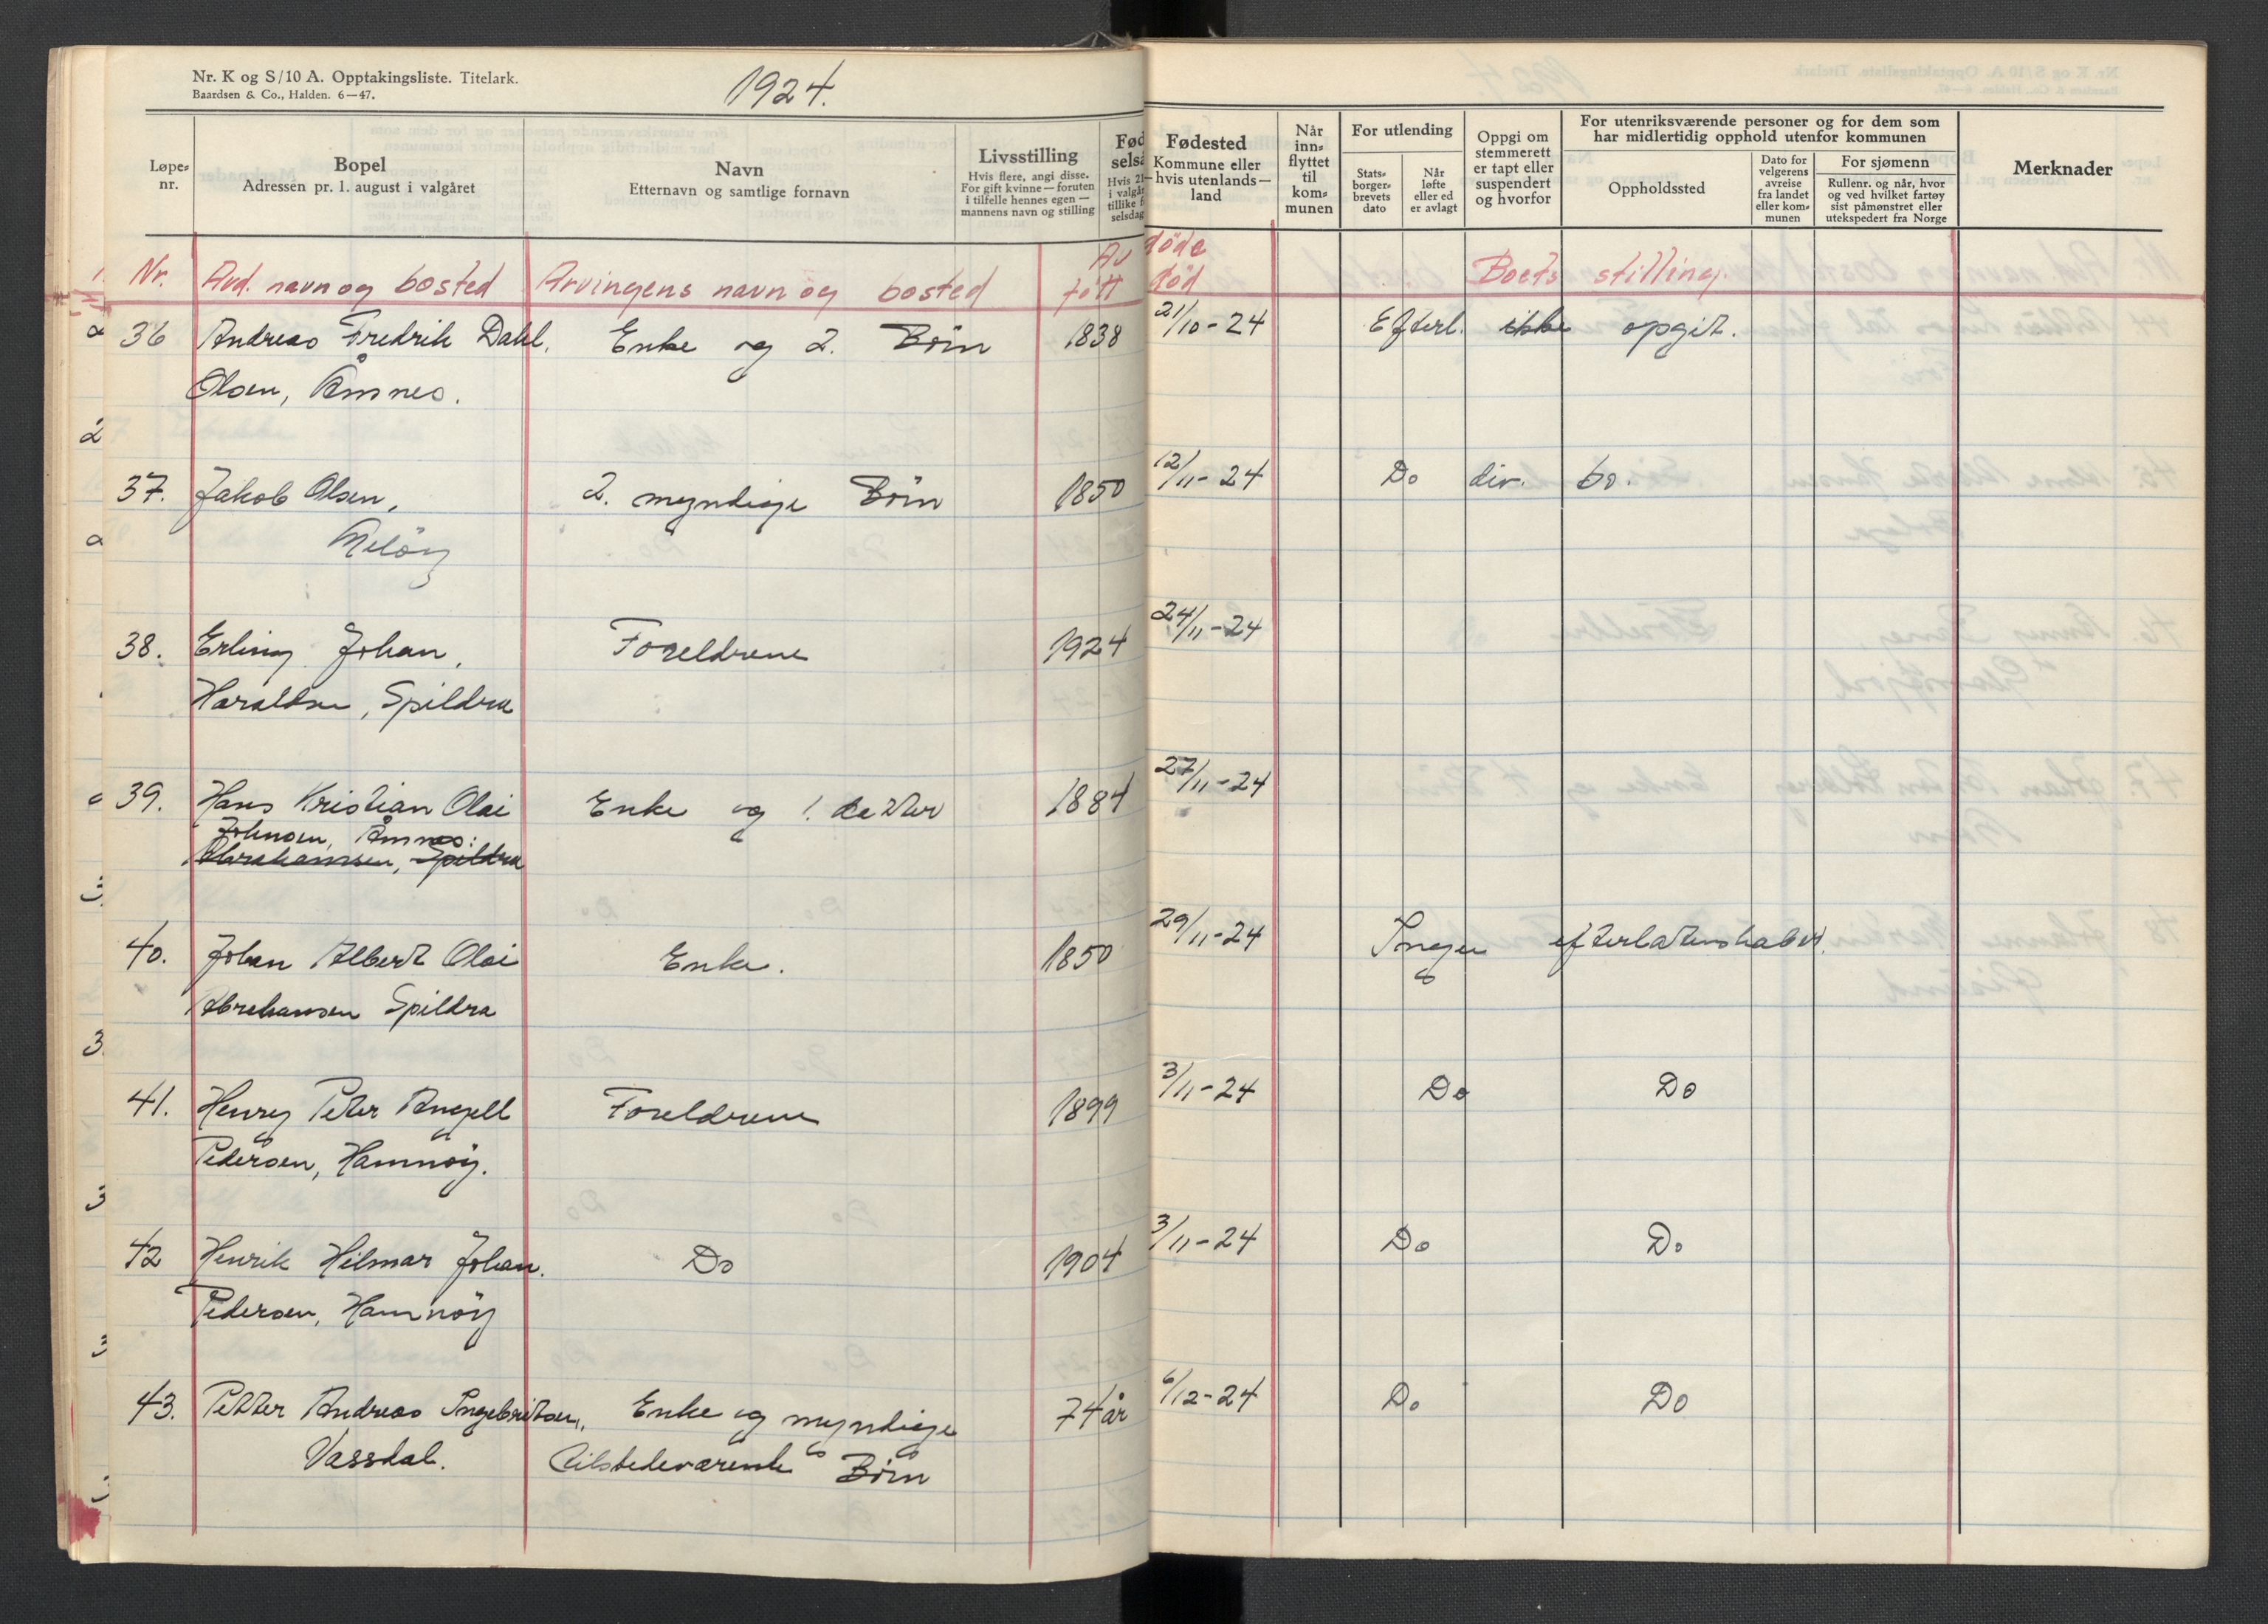 Nr. K og S/10 A. Opptakingsliste. Titelark.
Baardsen & Co., Halden. 6—47.
1924.
Løpe-
nr.
Bopel
Adressen pr. 1. august i valgåret
Navn
Etternavn og samtlige fornavn
Livsstilling
Hvis flere, angi disse.
For gift kvinne — foruten
i tilfelle hennes egen —
mannens navn og stilling
Fød
selså
Hvis 21
i valgår
tillike f
selsdag
Fødested
Kommune eller
hvis utenlands—
land
Når
inn-
flyttet
til
kom-
munen
For utlending
Stats-
borger-
brevets
dato
Når
løfte
eller ed
er avlagt
Oppgi om
stemmerett
er tapt eller
suspendert
og hvorfor
For utenriksværende personer og for dem som
har midlertidig opphold utenfor kommunen
Oppholdssted
Dato for
velgerens
avreise
fra landet
eller kom-
munen
For sjømenn
Rullenr. og når, hvor
og ved hvilket fartøy
sist påmønstret eller
utekspedert fra Norge
Merknader
Av døde
Nr. Avd. navn og bosted Arvingens navn og bosted født død Boets stilling.
36 Andreas Fredrik Dahl, Enke og 2. Börn 1838 21/10-24 Efterl. ikke opgit.
Olsen, Åmnes.
37. Jakob Olsen, 2. myndige Börn 1850 12/11-24 Do div. bo.
Melöy
38. Erling Johan, Foreldrene 1924 24/11-24
Haraldsen, Spildra
39. Hans Kristian Olai Enke og 1. datter 1884 27/11-24
Johnsen, Åmnes:
Abrahamsen, Spildra
40. Johan Albert Olai Enke. 1850 29/11-24 Ingen efterlatenskaber.
Abrahamsen Spildra
41. Henry Peter Angell Foreldrene 1899 3/11-24 Do Do
Pedersen, Hamnöy.
42 Henrik Hilmar Johan. Do 1904 3/11-24 Do Do
Pedersen, Hamnöy
43. Petter Andreas Ingebritsen, Enke og myndige 74 år 6/12-24 Do Do
Vassdal. tilstedeværende Börn